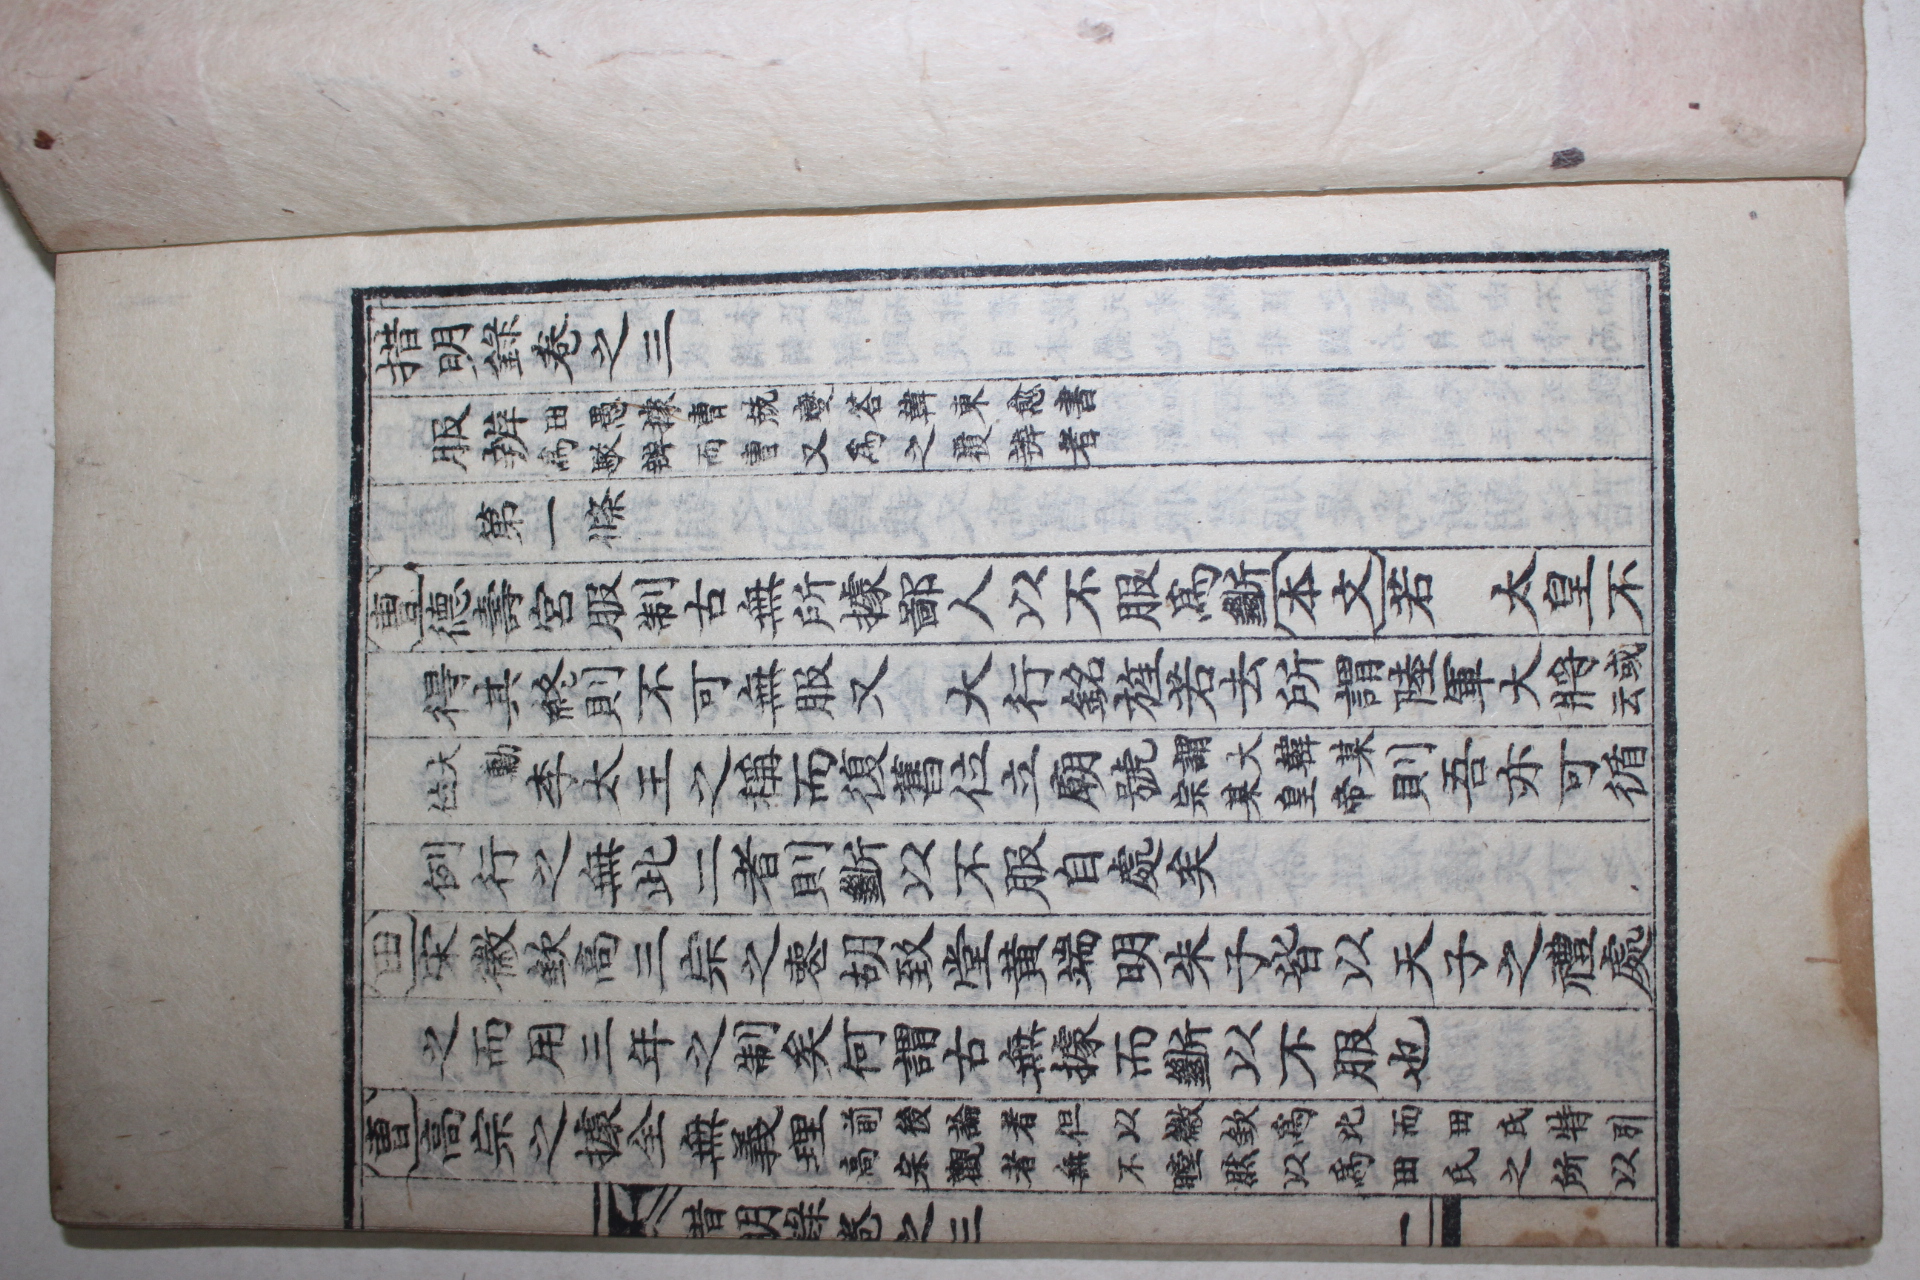 措明錄卷之三
服辨田愚據曹兢燮答韓東愈書爲駁辨而曹又爲之覆辨者
第一條
曺德壽宮服制古無所據鄙人以不服爲斷本文若 太皇不
得其終則不可無服又 大行銘旌若去所謂陸軍大將或云
大勳位李太王之稱而復舊位立廟號謂大韓某宗某皇帝則吾亦可循
例行之無此二者則斷以不服自處矣
田宋徽欽高三宗之喪胡致堂黃端明朱子皆以天子之禮處
之而用三年之制矣何謂古無據而斷以不服也
曺高宗之據全無義理前後論者但以徽欽爲比而田氏特引高宗觀者無不瞠然以爲田氏之所以
措明錄卷之三 一